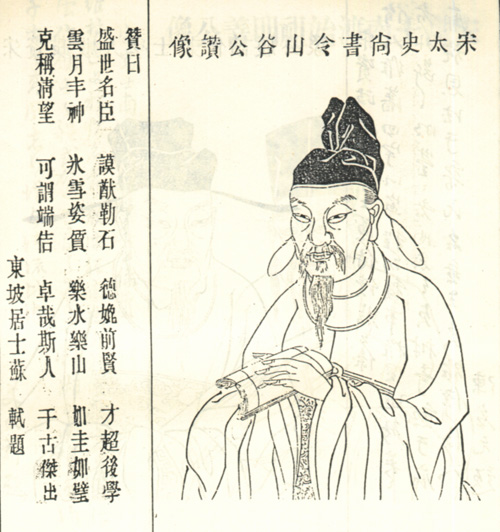 宋太史尚書令山谷公讚像
贊曰
盛世名臣 謨猷勒石 德媲前賢 才超後學
雲月丰神 氷雪姿質 樂水樂山 如圭如璧
克稱淸望 可謂端佶 卓哉斯人 千古傑出
東坡居士蘇 軾題